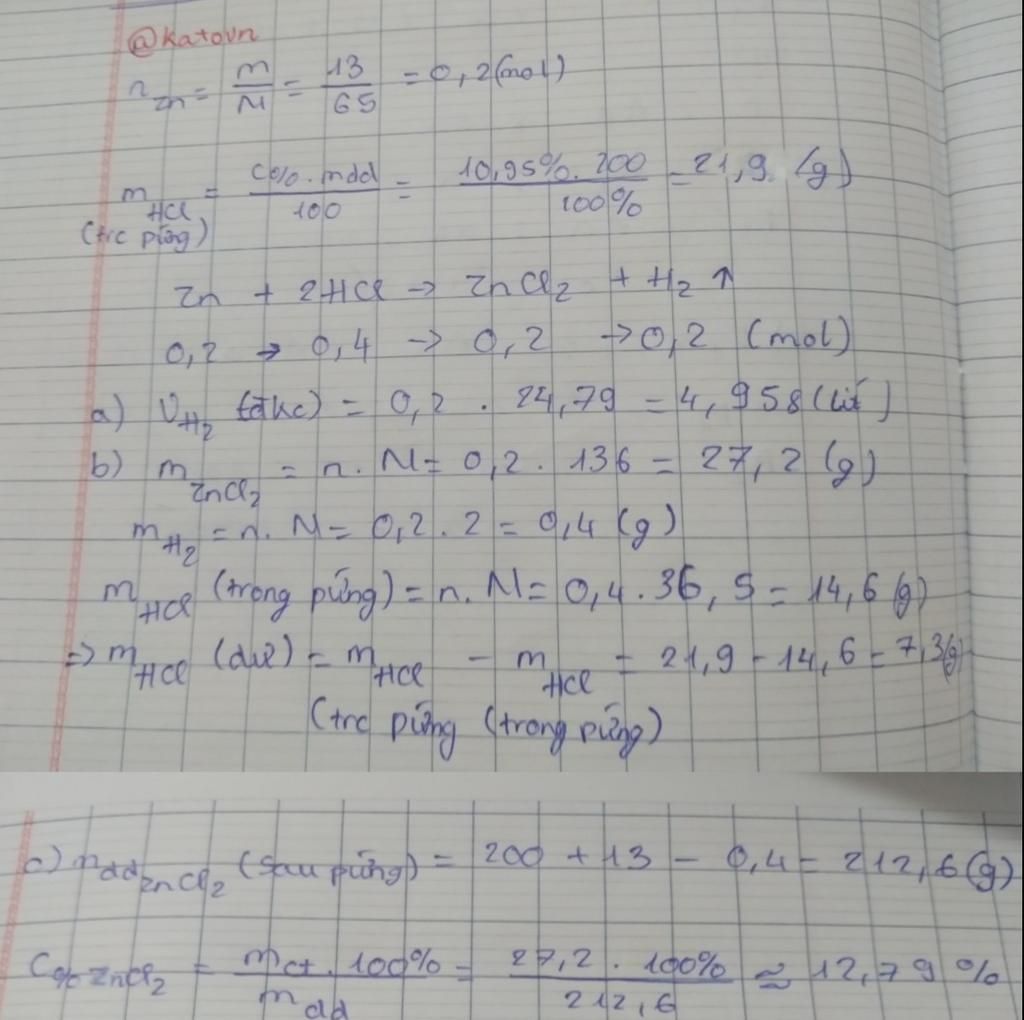 @katovn
n Zn = m/M = 13/65 = 0,2(mol)
m HCl (trc pứng) = C%.mdd/100 = 10,95%.200/100% = 21,9 (g)
Zn + 2HCl → ZnCl₂ + H₂ ↑
0,2 → 0,4 → 0,2 → 0,2 (mol)
a) V H₂ (đkc) = 0,2 . 24,79 = 4,958 (lít)
b) m ZnCl₂ = n. M = 0,2. 136 = 27,2 (g)
m H₂ = n. M = 0,2. 2 = 0,4 (g)
m HCl (trong pứng) = n. M = 0,4. 36,5 = 14,6 (g)
=> m HCl (dư) = m HCl - m HCl = 21,9 - 14,6 = 7,3(g)
(trc pứng (trong pứng)
c) mdd ZnCl₂ (sau pứng) = 200 + 13 - 0,4 = 212,6 (g)
C% ZnCl₂ = mct. 100%/mdd = 27,2. 100%/212,6 ≈ 12,79%